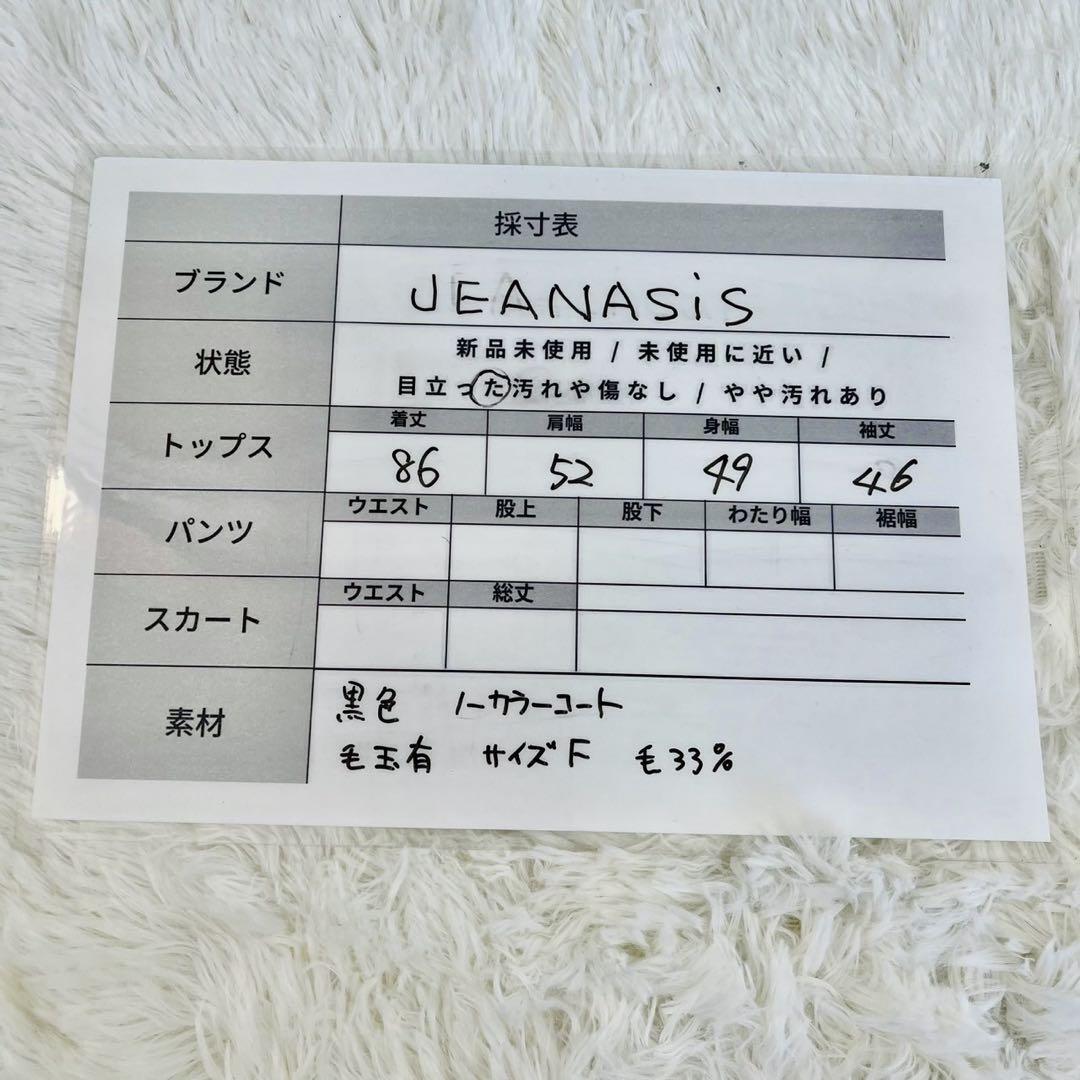 採寸表
ブランド JEANASiS
状態 新品未使用 / 未使用に近い /
目立った汚れや傷なし / やや汚れあり
着丈 肩幅 身幅 袖丈
トップス 86 52 49 46
ウエスト 股上 股下 わたり幅 裾幅
パンツ
ウエスト 総丈
スカート
黒色 ノーカラーコート
素材
毛玉有 サイズF 毛33%